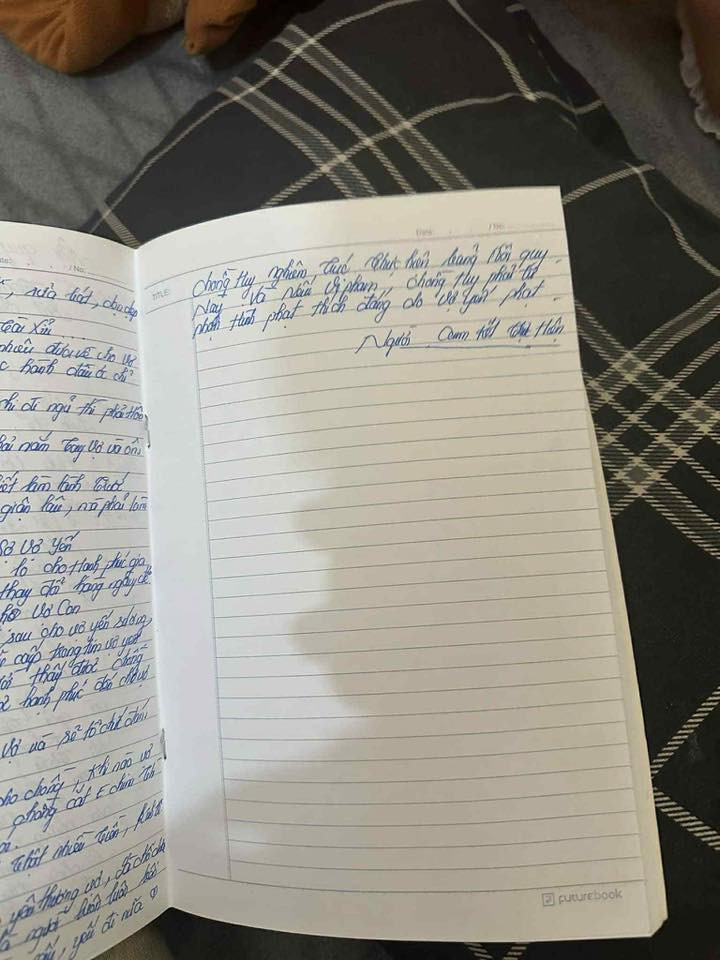 No:
, rửa bát, dọn dẹp
đưa về cho vợ
hành đâu ở chỉ
khi đi ngủ thì phải
phải nắm tay vợ và ôm
làm lành trước
giận lâu, mà phải làm
Sợ vợ Yến
lo cho Hạnh phúc gia
thay đổi hàng ngày để
Vợ Con
sau cho vợ yến sướng
trong tim vợ yến
thấy được chồng
hạnh phúc đến cho vợ
Vợ và sẽ tổ chức đám
cho chồng, Khi nào vợ
phòng cất
thật nhiều tiền,
yêu thương vợ,
là người luôn luôn
, yếu đi nữa ♡
Date: No:
TITLE:
Chồng Huy nghiêm túc thực hiện bảng nội quy
Này Và nếu vi phạm, chồng Huy phải tự
nhận hình phạt thích đáng do vợ Yến phạt.
Người Cam kết thực hiện
FUTUREBOOK